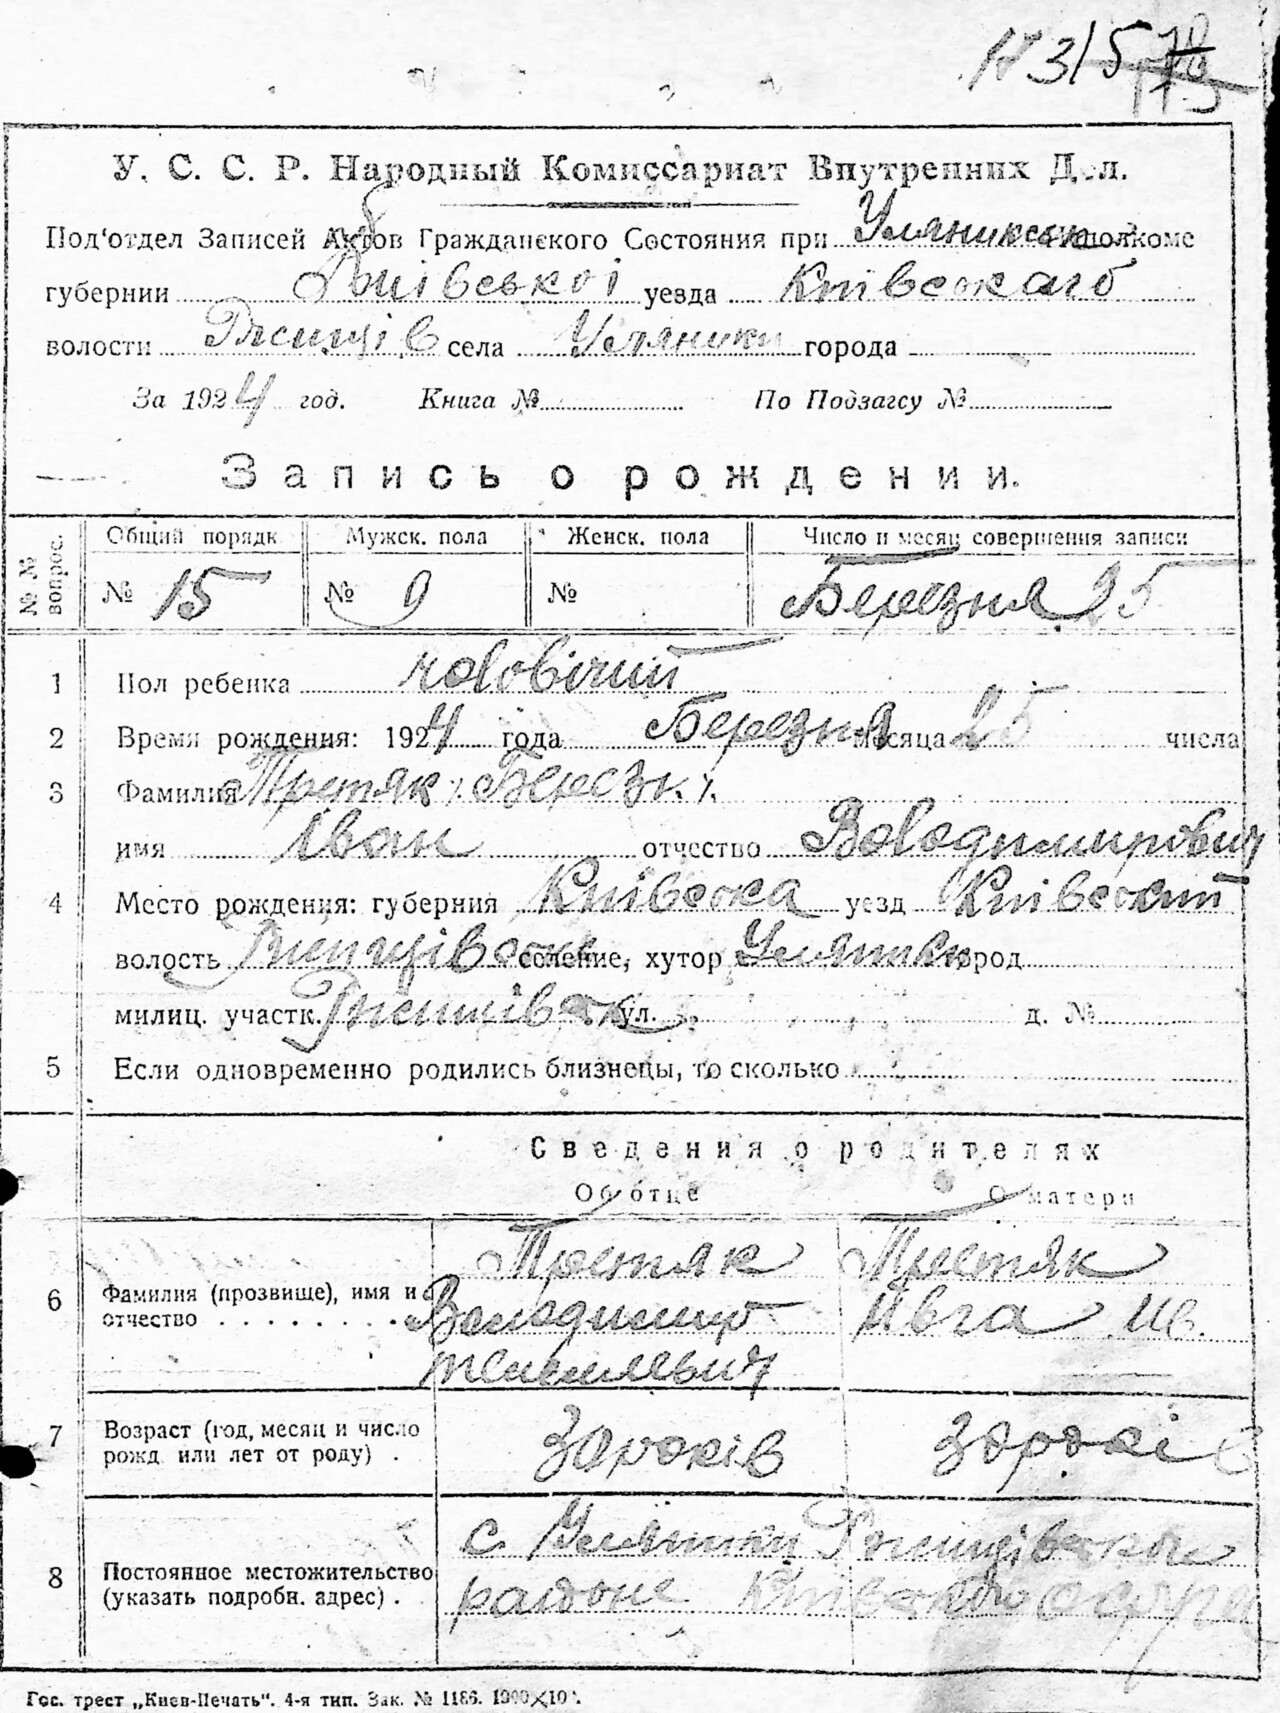 № 315
У. С. С. Р. Народный Комиссариат Внутренних Дел.
Под'отдел Записей Актов Гражданского Состояния при Уляникськ исполкоме
губернии Київської уезда Київського
волости Ржищів села Уляники города
За 1924 год. Книга № По Подзагсу №
Запись о рождении.
№ № вопрос. Общий порядк Мужск. пола Женск. пола Число и месяц совершения записи
№ 15 № 9 № Березня 25
1 Пол ребенка чоловічий
2 Время рождения: 1924 года Березня месяца 25 числа
3 Фамилия Третяк (Березк.).
имя Іван отчество Володимирович
4 Место рождения: губерния Київська уезд Київський
волость Ржищівська селение, хутор Уляники город
милиц. участк. Ржищівськ ул. д. №
5 Если одновременно родились близнецы, то сколько
Сведения о родителях
Об отце О матери
6 Фамилия (прозвище), имя и отчество Третяк Третяк
Володимир Івга Ів.
7 Возраст (год, месяц и число рожд или лет от роду) . років років
8 Постоянное местожительство (указать подробн. адрес) . с. Уляники Ржищівського
району Київської округи
Гос. трест „Киев-Печать". 4-я тип. Зак. № 1186.